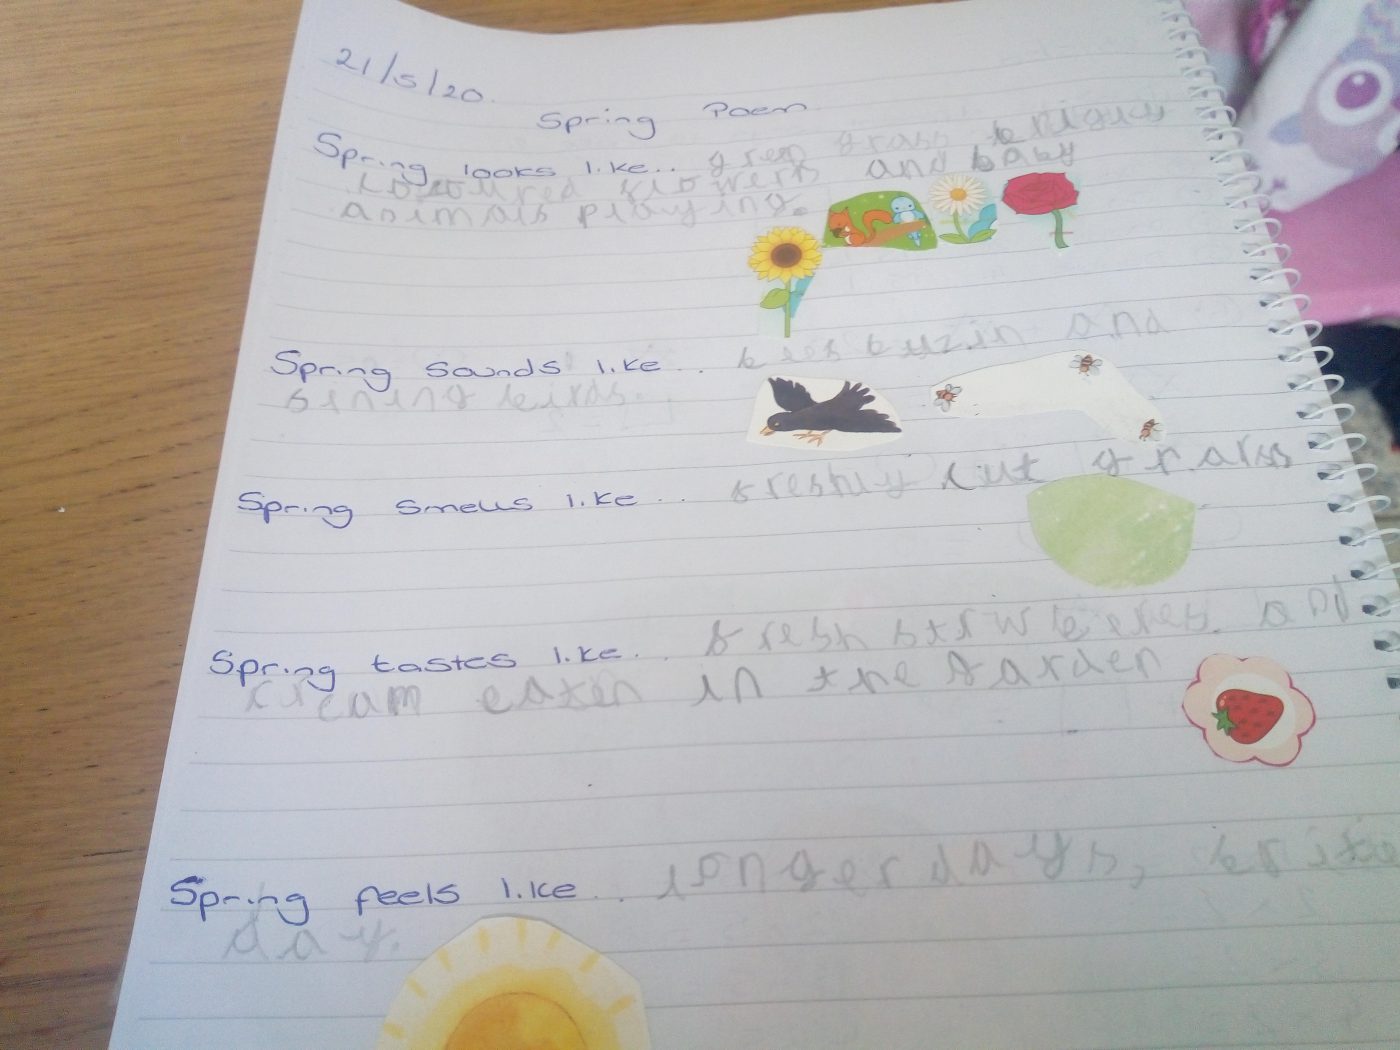 21/5/20.
Spring Poem
Spring looks like... green grass brigucy
coloured flowers and baby
animals playing.
Spring sounds like... bees buzin and
sining birds.
Spring smells like... freshly cut grarss
Spring tastes like... fresh strwberes. and
cream eaten in the garden
Spring feels like... longer days,
day.